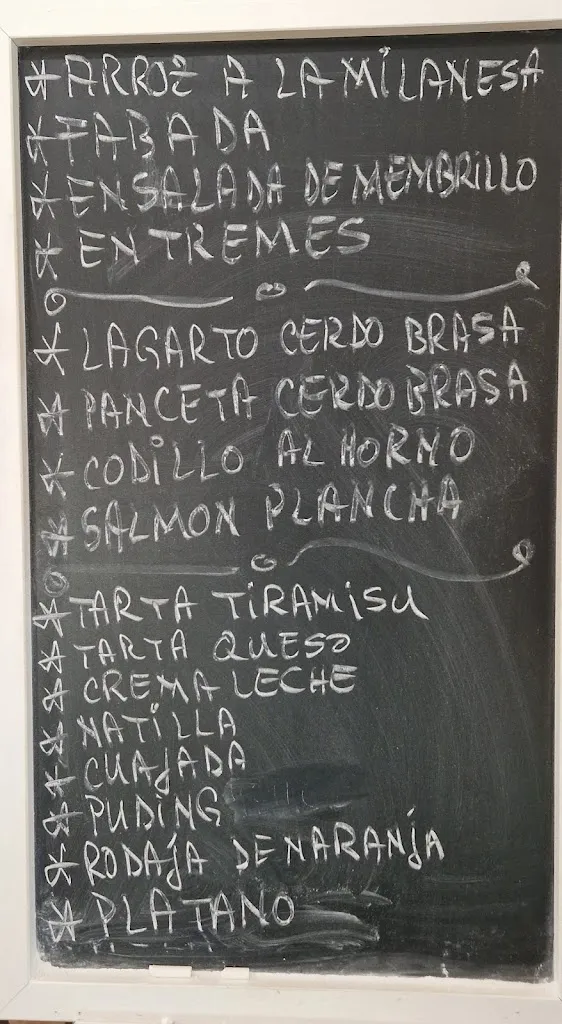 * ARROZ A LA MILANESA
* FABADA
* ENSALADA DE MEMBRILLO
* ENTREMES
* LAGARTO CERDO BRASA
* PANCETA CERDO BRASA
* CODILLO AL HORNO
* SALMON PLANCHA
* TARTA TIRAMISU
* TARTA QUESO
* CREMA LECHE
* NATILLA
* CUAJADA
* PUDING
* RODAJA DE NARANJA
* PLATANO